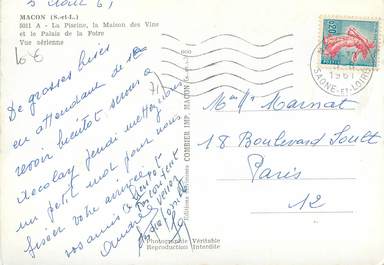 5 août 61
MACON (S.-et-L.)
5011 A - La Piscine, la Maison des Vins
et le Palais de la Foire
Vue aérienne
6 €
De grosses bises
en attendant de se
revoir bientôt. serons à
jeudi mettez nous
un petit mot pour nous
fixer votre arrivée
vos amis
Editions COMBIER IMP. MACON
Photographie Véritable
Reproduction Interdite
0,20
1961
SAONE-ET-LOIRE
Marnat
18 Boulevard Soult
Paris
12